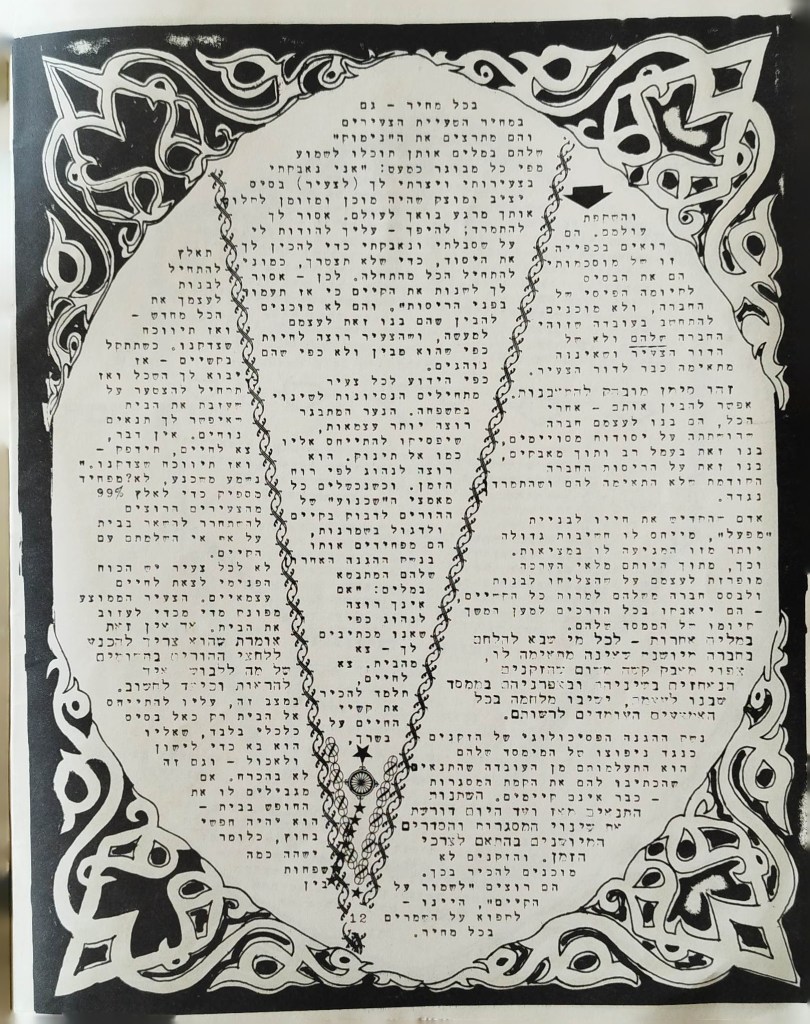 והשקפת
עולמם. הם
רואים בכפייה
זו של מוסכמות
הם את הבסיס
לקיומה הפיסי של
החברה, ולא מוכנים
להתחשב בעובדה שזוהי
החברה שלהם ולא של
הדור הצעיר ושאיננה
מתאימה כבר לדור הצעיר.
זהו סימן מובהק להזדקנות.
אפשר להבין אותם - אחרי
הכל, הם בנו לעצמם חברה
על יסודות מסויימים,
בנו זאת בעמל רב ותוך מאבקים,
בנו זאת על הריסות החברה
הקודמת שלא התאימה להם ושהתמרדו
נגדה.
אדם הקדיש את חייו לבניית
"מפעל", מייחס לו חשיבות גדולה
יותר מזו המגיעה לו במציאות.
וכך, מתוך היותם מלאי הערכה
מופרזת לעצמם על שהצליחו לבנות
ולבסס חברה משלהם למרות כל הקשיים
- הם ייאבקו בכל הדרכים למען המשך
קיומו של הממסד שלהם.
במלים אחרות - לכל מי שבא להלחם
בחברה מיושנת שאינה מתאימה לו,
צפוי מאבק קשה משום שהזקנים
הנאחזים בשיניהם ובצפורניהם בממסד
שבנו לעצמם, ישיבו מלחמה בכל
האמצעים העומדים לרשותם.
אחת ההגנה הפסיכולוגי של הזקנים
כנגד ניפוצו של הממסד שלהם
הוא התעלמותם מן העובדה שהתנאים
שהכתיבו להם את הקמת המסגרות
- כבר אינם קיימים. השתנות
התנאים מאז ועד היום דורשת
את שינוי המסגרות והסדרים
המיושנים בהתאם לצרכי
הזמן. והזקנים לא
מוכנים להכיר בכך.
הם רוצים "לשמור על
הקיים", היינו -
לקפוא על השמרים
בכל מחיר.
בכל מחיר - גם
במחיר השעיית הצעירים
והם מתרצים את ה"נימוק"
שלהם במלים אותן תוכלו לשמוע
מפי כל מבוגר כמעט: "אני נאבקתי
בצעירותי ויצרתי לך (לצעיר) בסיס
יציב ומוצק שהיה מוכן ומזומן לחלוק
אותך מרגע בואך לעולם. אסור לך
להתמרד; להיפך - עליך להודות לי
על שסבלתי ונאבקתי כדי להכין לך
את היסוד, כדי שלא תצטרך, כמוני
להתחיל הכל מהתחלה. לכן - אסור
לך לשנות את הקיים כי אז תעמוד
בפני הריסות". והם לא מוכנים
להבין שהם בנו זאת לעצמם
למעשה, ושהצעיר רוצה לחיות
כפי שהוא מבין ולא כפי שהם
נוהגים.
כפי הידוע לכל צעיר
מתחילים הנסיונות לשינוי
במשפחה. הנער המתבגר
רוצה יותר עצמאות,
שיפסיקו להתייחס אליו
כמו אל תינוק. הוא
רוצה לנהוג לפי רוח
הזמן. וכשנכשלים כל
מאמצי ה"שכנוע" של
ההורים לדבוק בקיים
ולדגול בשמרנות,
הם מפחידים אותו
בנשק ההגנה האחרון
שלהם המתבטא
במלים: "אם
אינך רוצה
לנהוג כפי
שאנו מכתיבים
לך - צא
מהבית. צא
לחיים,
תלמד להכיר
את קשיי
החיים על
בשרך,
תאלץ
להתחיל
לבנות
לעצמך את
הכל מחדש -
ואז תיווכח
שצדקנו. כשתתקל
בקשיים - אז
יבוא לך השכל ואז
תתחיל להצטער על
עזיבת את הבית
שאיפשר לך תנאים
נוחים. אין דבר,
צא לחיים, תידפק -
ואז תיווכח שצדקנו."
נשמע משכנע, לא? מפחיד
מספיק כדי לאלץ 99%
מהצעירים הרוצים
להשתחרר להשאר בבית
על אף אי השלמתם עם
הקיים.
לא לכל צעיר יש הכוח
הפנימי לצאת לחיים
עצמאיים. הצעיר הממוצע
מפונק מדי מכדי לעזוב
את הבית. אך אין זאת
אומרת שהוא צריך להכנע
ללחצי ההורים
של מה ללבוש איך
להראות וכיצד לחשוב.
במצב זה, עליו להתייחס
אל הבית רק כאל בסיס
כלכלי בלבד, שאליו
הוא בא כדי לישון
ולאכול - וגם זה
לא בהכרח. אם
מגבילים לו את
החופש בבית -
הוא יהיה חפשי
בחוץ, כלומר
ישהה כמה
שפחות
בין
12